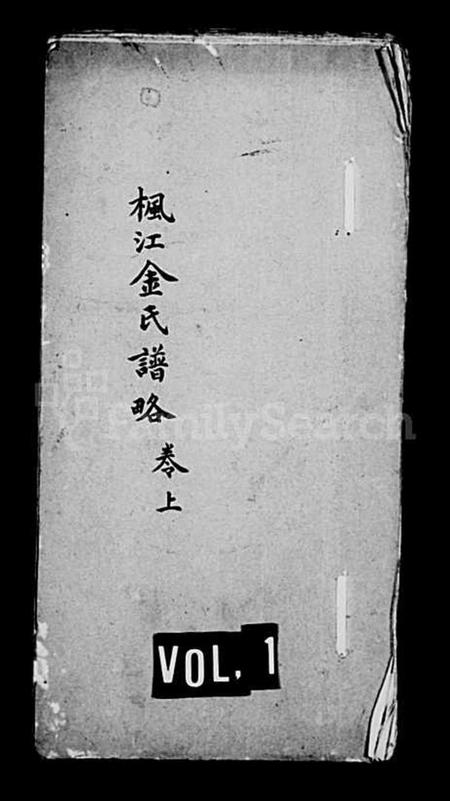 楓江金氏譜略
卷上
FamilySearch
VOL. 1